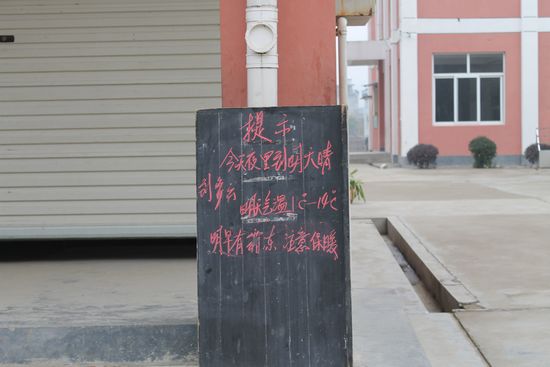 提示
今天夜里到明天晴
到多云
明天气温1℃-14℃
明早有霜冻 注意保暖